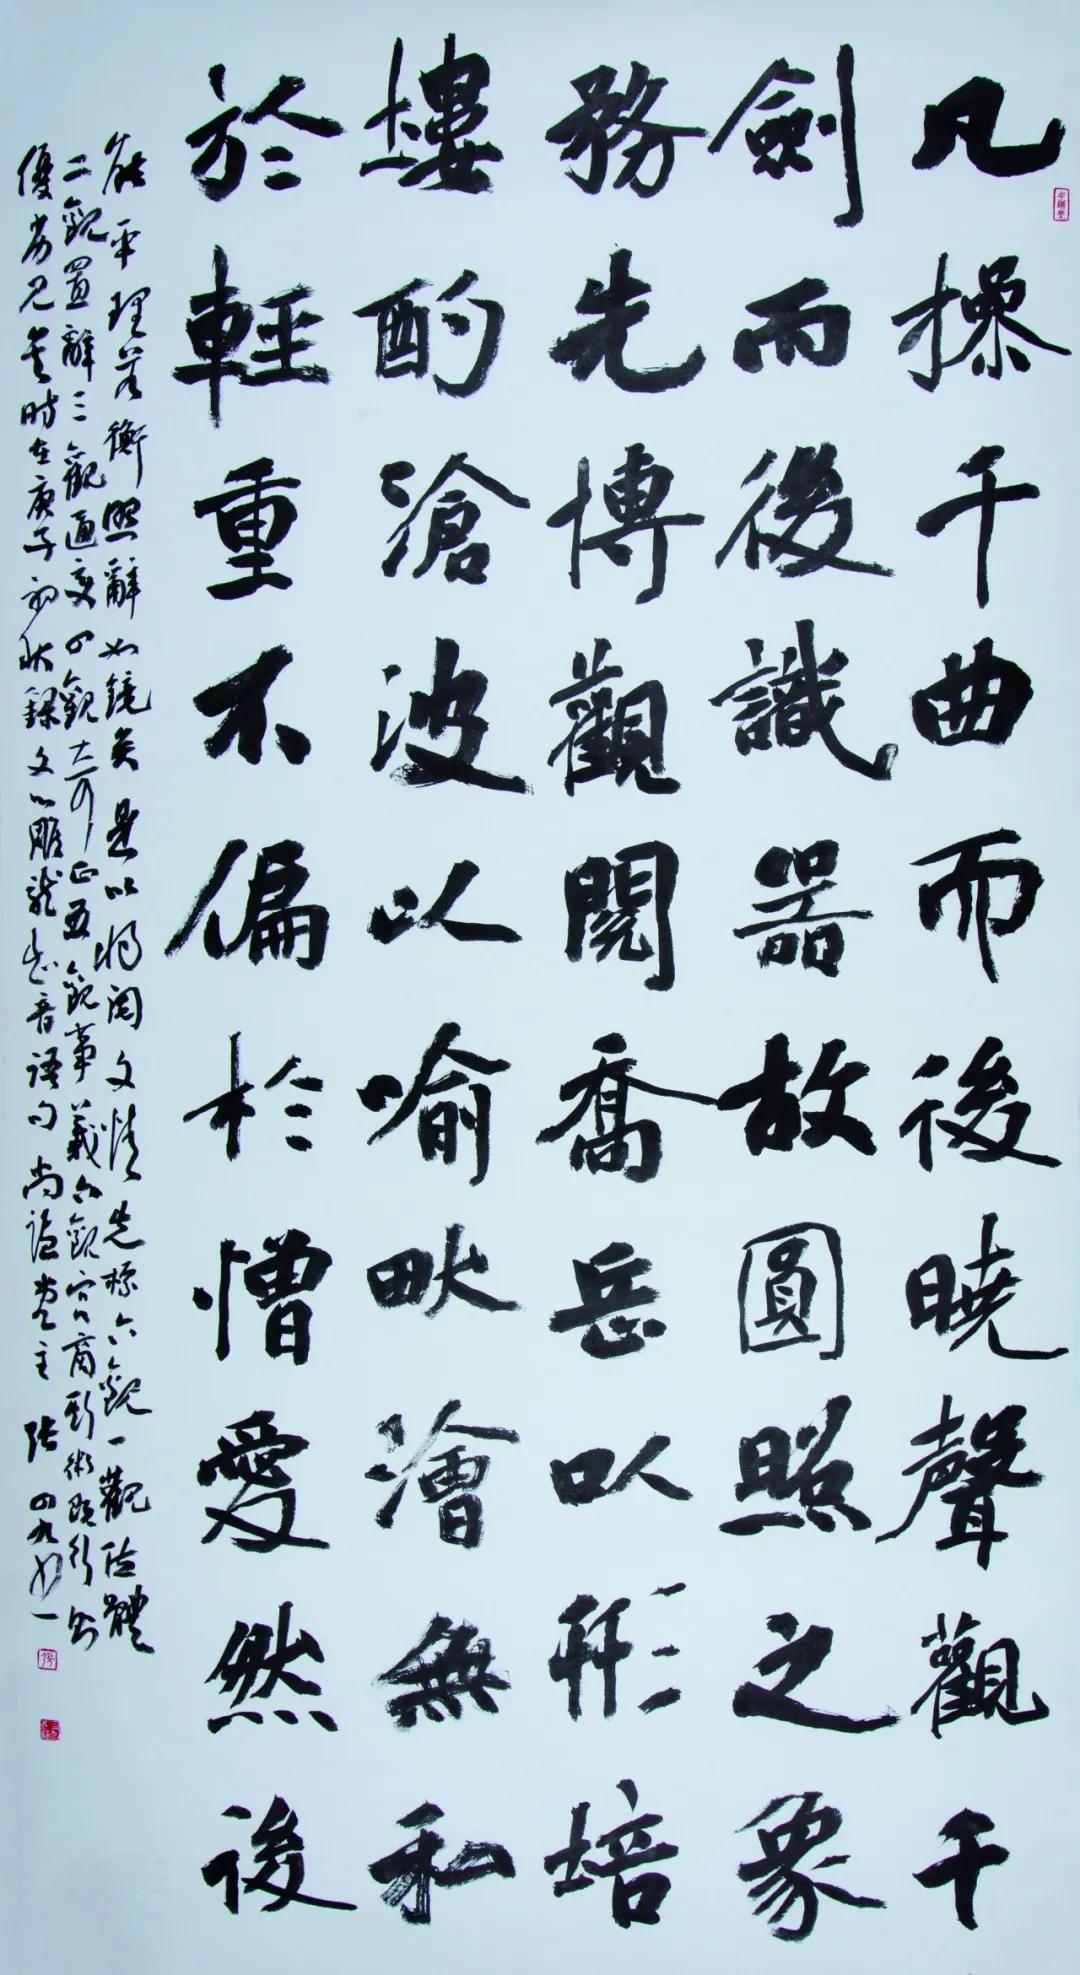 凡操千曲而後曉聲觀千
劍而後識器故圓照之象
務先博觀閱喬岳以形培
塿酌滄波以喻畎澮無私
於輕重不偏於憎愛然後
能平理若衡照辭如鏡矣是以將閱文情先標六觀一觀位體
二觀置辭三觀通變四觀奇正五觀事義六觀宮商斯術既行則
優劣見矣時在庚子初秋錄文心雕龍知音語句尚堂主張四九一